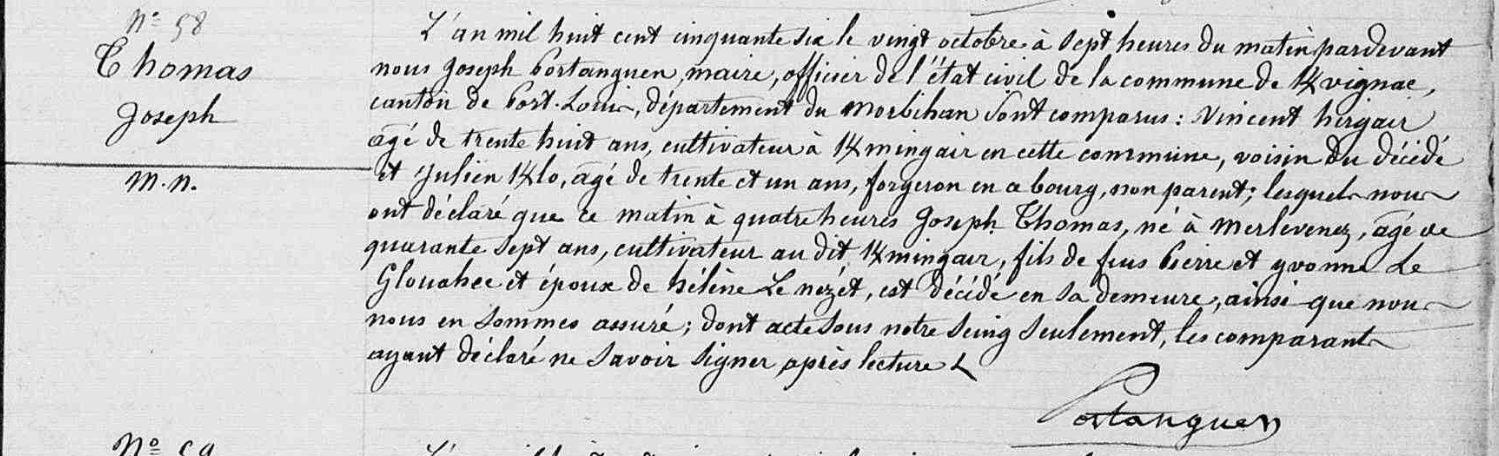 N° 58
Thomas
Joseph
M. N.
L'an mil huit cent cinquante six le vingt octobre à sept heures du matin pardevant
nous Joseph Portanguen, maire, officier de l'état civil de la commune de Kvignac,
canton de Port-Louis, département du Morbihan sont comparus : Vincent hirgair
âgé de trente huit ans, cultivateur à Kmingair en cette commune, voisin du décédé
et Julien Klo, âgé de trente et un ans, forgeron en ce bourg, non parent; lesquels nous
ont déclaré que ce matin à quatre heures Joseph Thomas, né à Merlevenez, âgé de
quarante sept ans, cultivateur au dit Kmingair, fils de feus Pierre et yvonne Le
Glouahec et époux de hélène Le nézét, est décédé en sa demeure, ainsi que nous
nous en sommes assuré; dont acte sous notre seing seulement, les comparants
ayant déclaré ne savoir signer, après lecture
Portanguen
N° 59